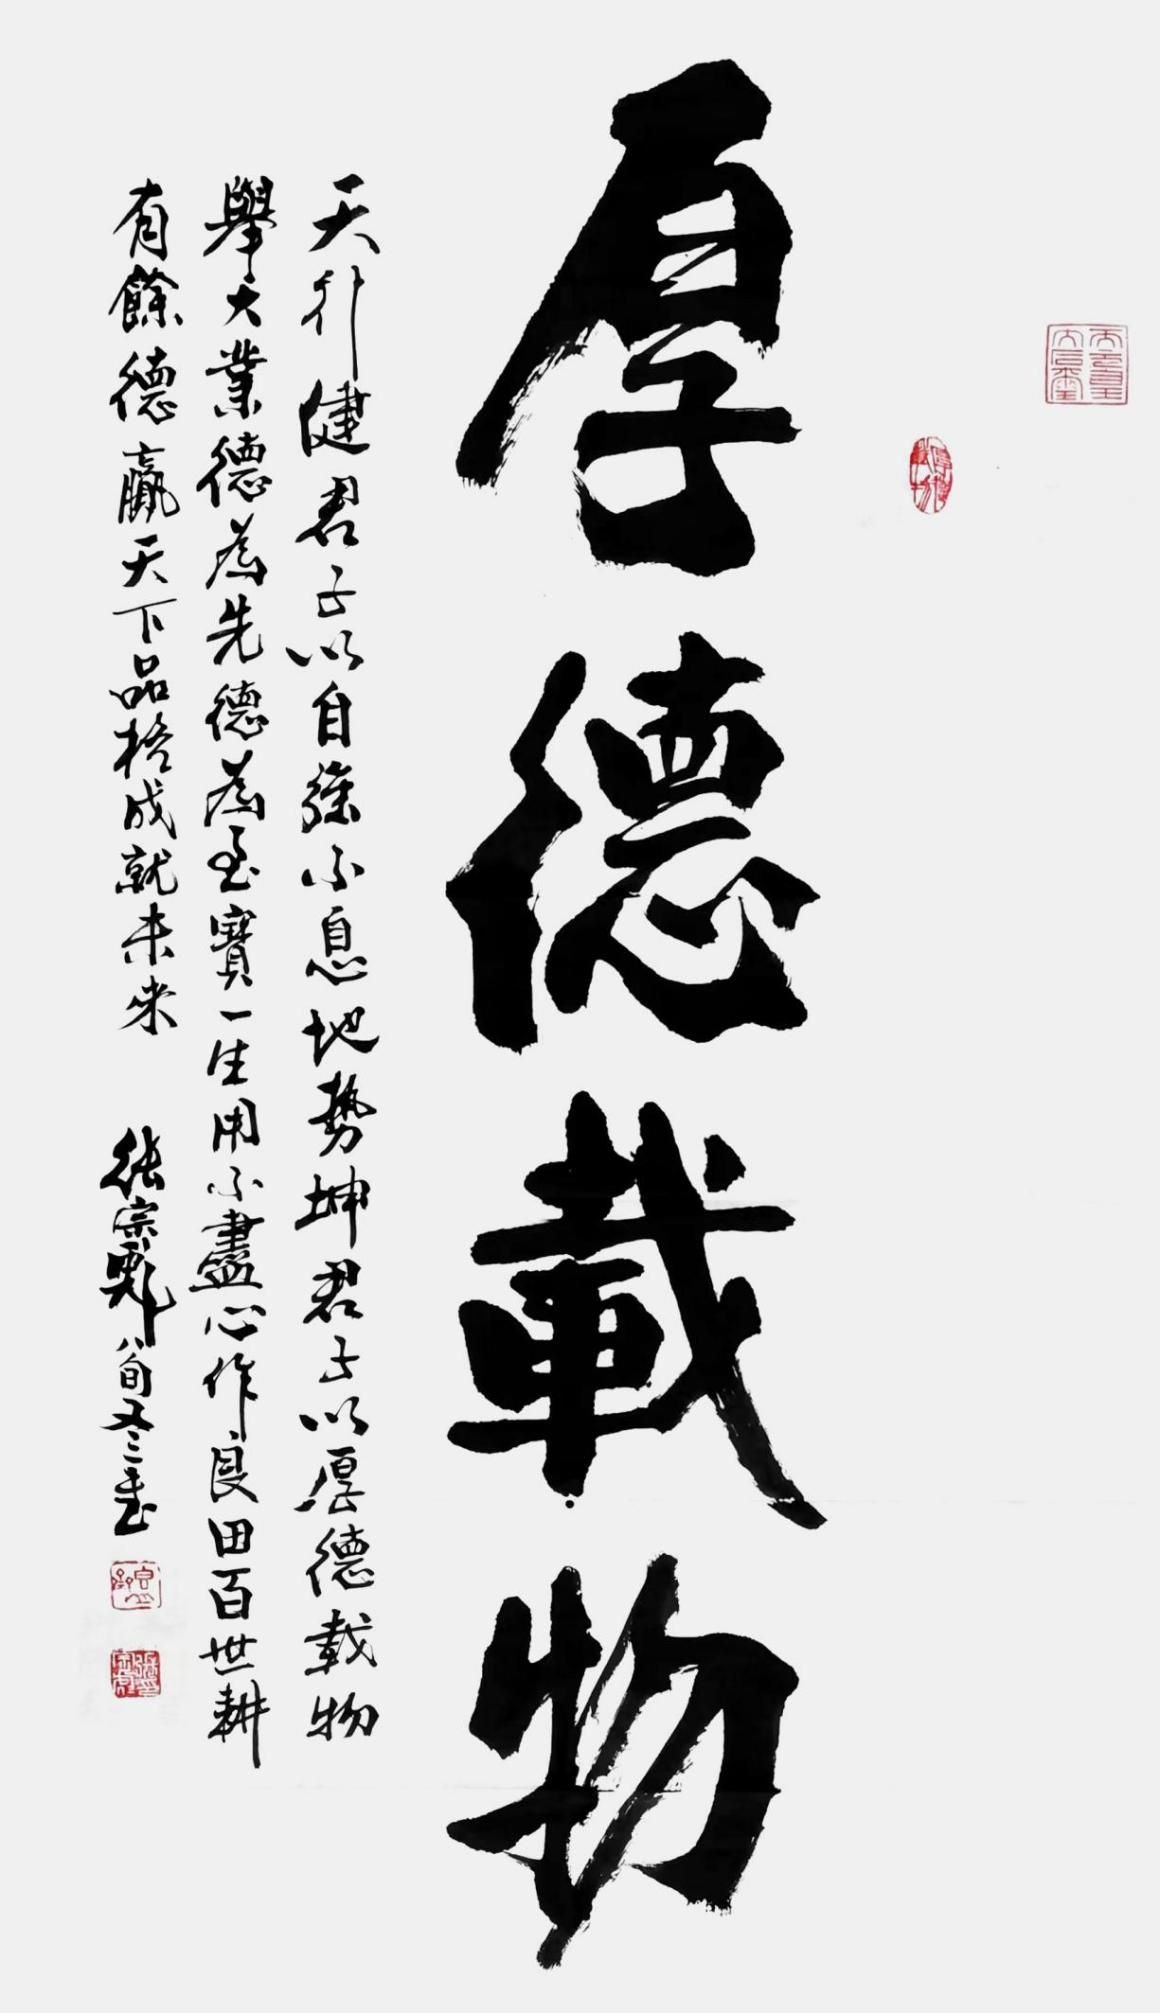 厚德載物
天行健君子以自強不息地勢坤君子以厚德載物
舉大業德為先德為至寶一生用不盡心作良田百世耕
有餘德贏天下品格成就未來
張宗彪八旬又三書